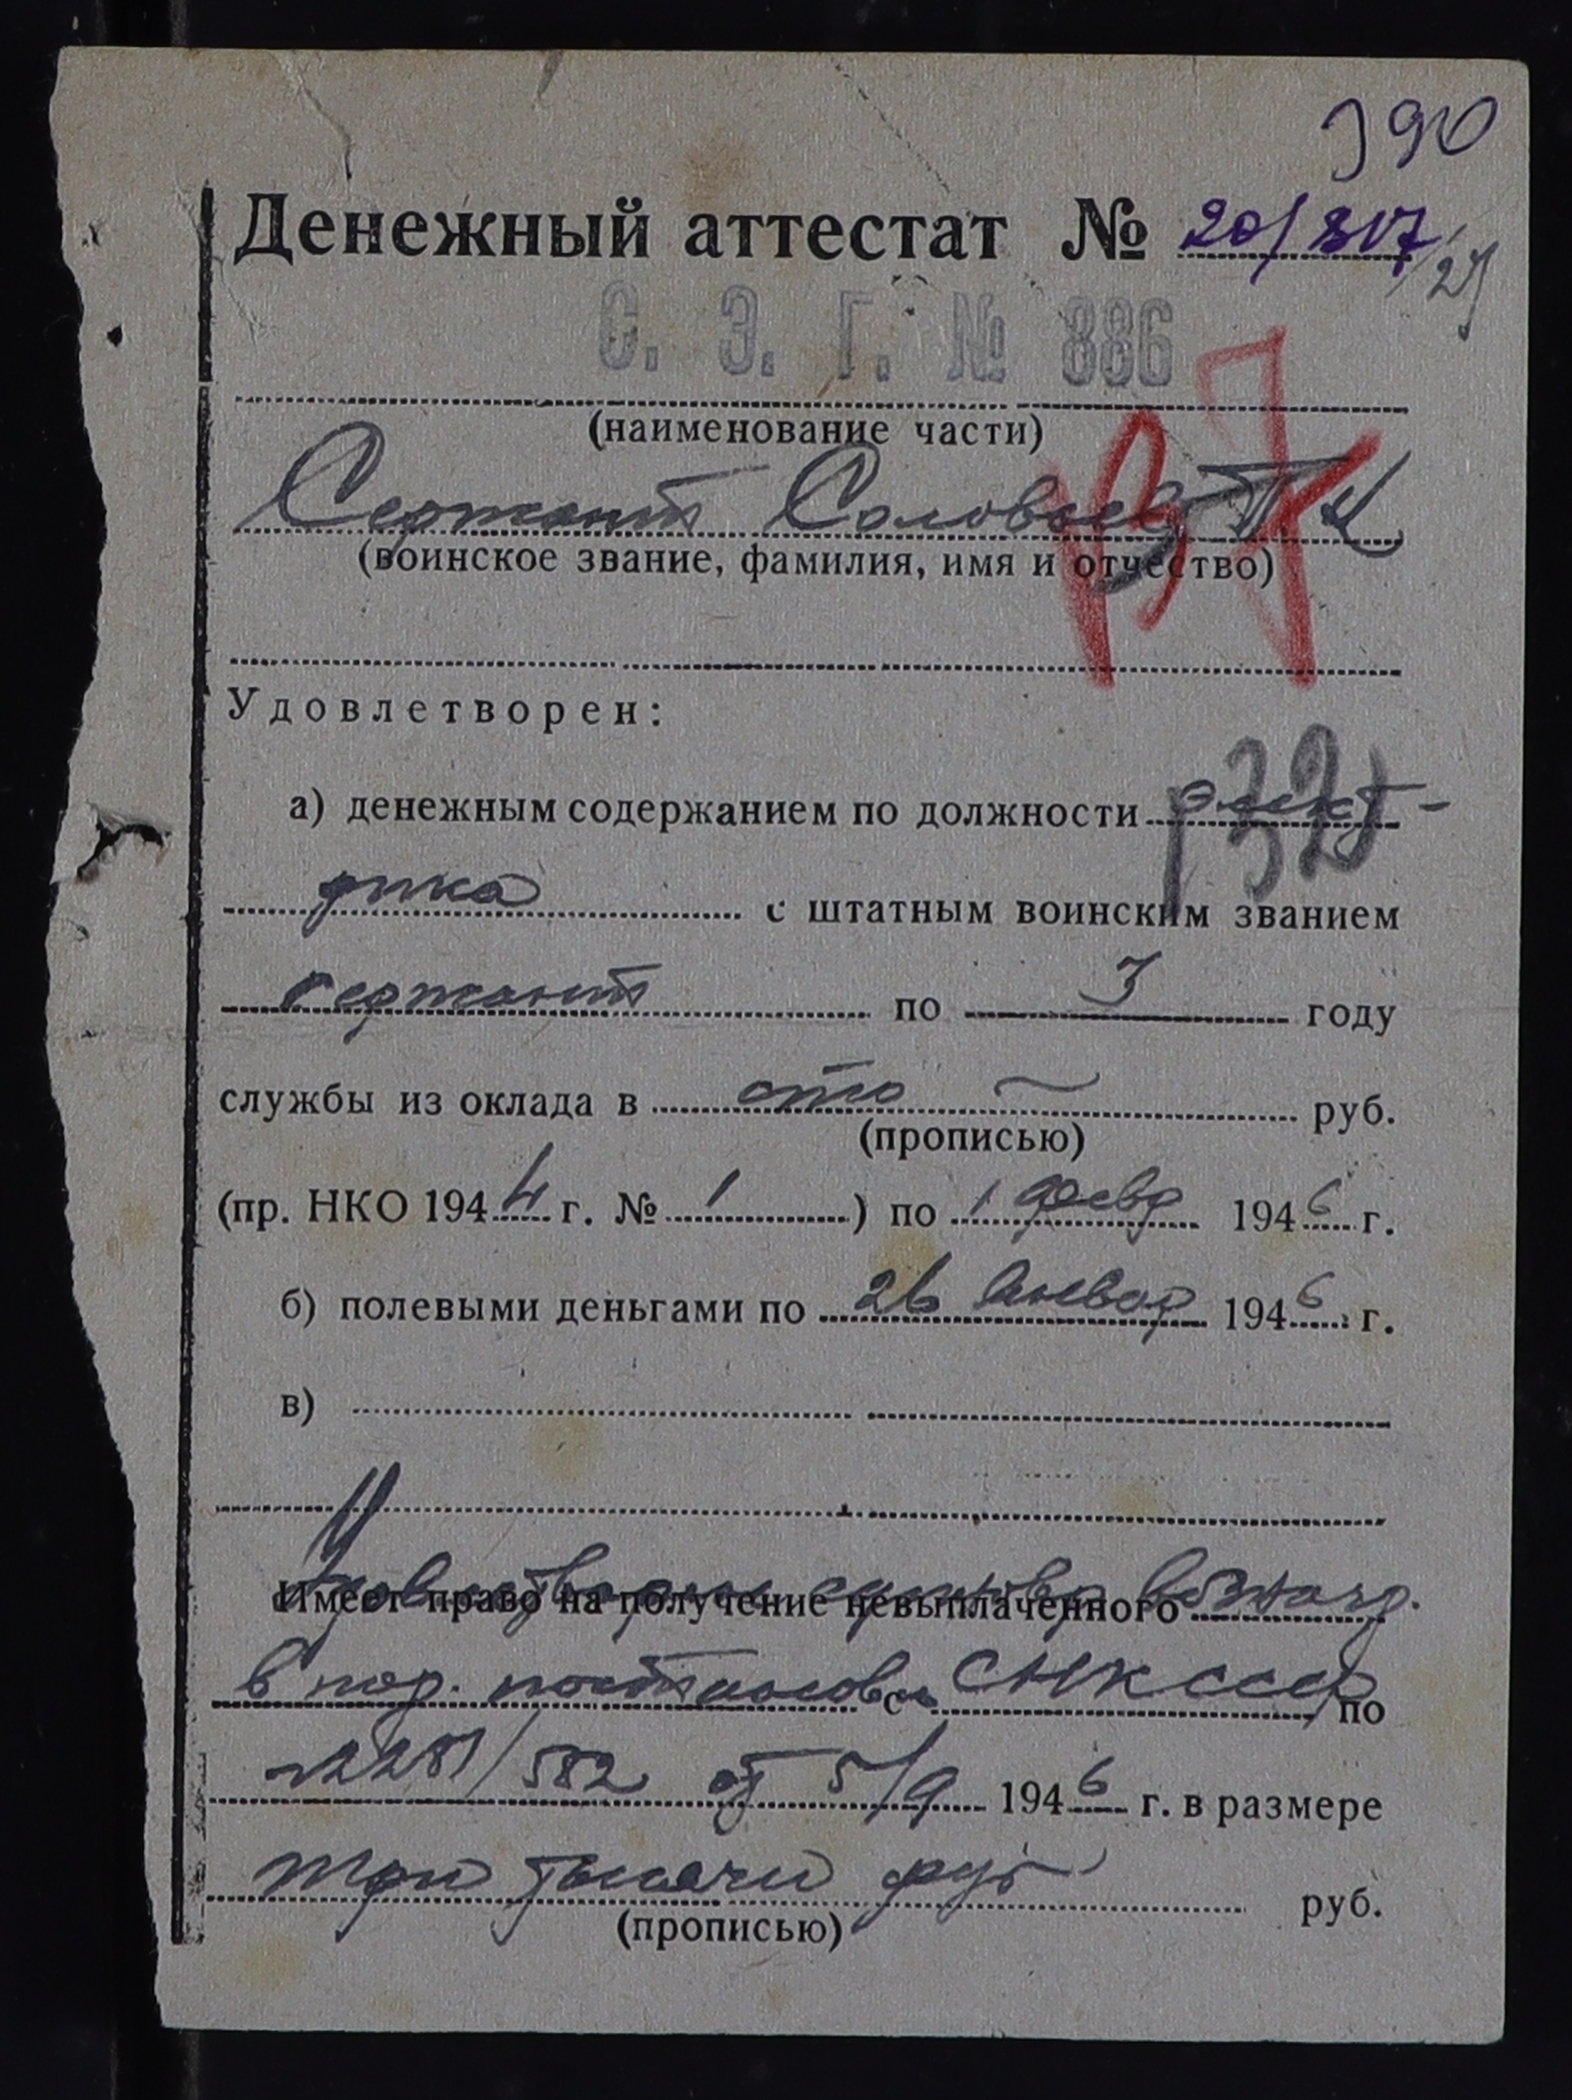 390
Денежный аттестат № 20/317/27
С. Э. Г. № 886
(наименование части)
Сержант Соловьев П К
(воинское звание, фамилия, имя и отчество)
Удовлетворен:
а) денежным содержанием по должности элект-
рика с штатным воинским званием
сержант по 3 году
службы из оклада в сто руб.
(прописью)
(пр. НКО 1944 г. № 1 ) по 1 февр 1946 г.
б) полевыми деньгами по 26 январ 1946 г.
в)
Удовлетворен единовр вознагр.
Имеет право на получение невыплаченного
в пор. постановл с СНК СССР по
№ 2281/582 от 5/9 1946 г. в размере
три тысячи руб руб.
(прописью)